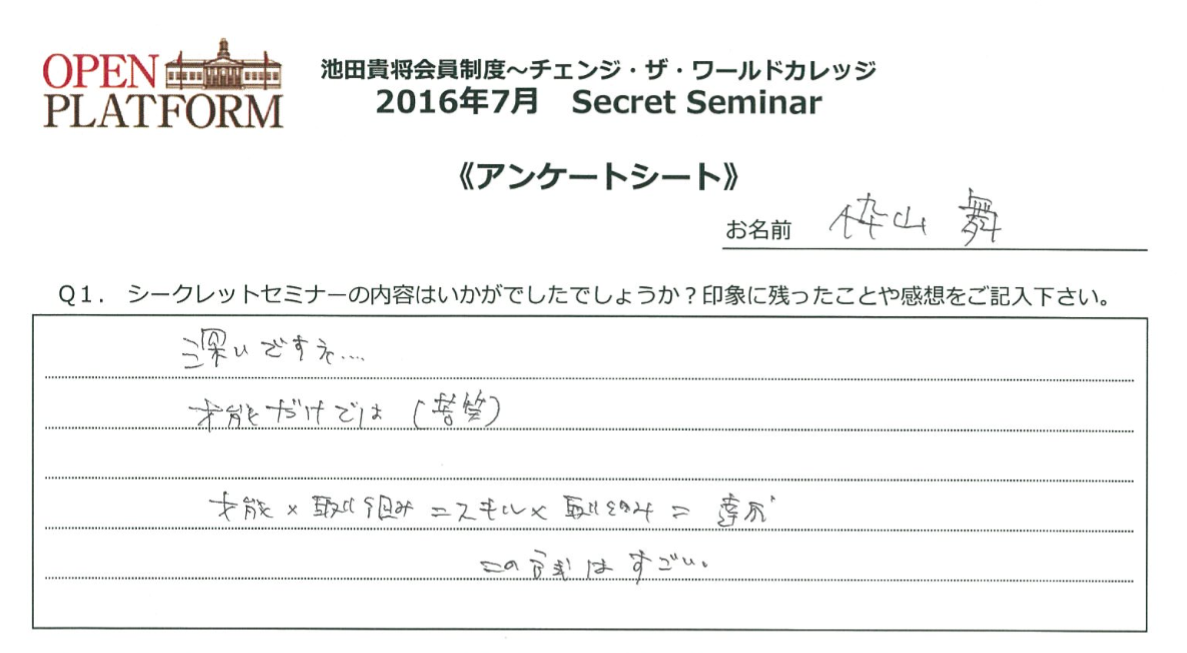 OPEN
PLATFORM
池田貴将会員制度～チェンジ・ザ・ワールドカレッジ
2016年7月 Secret Seminar
《アンケートシート》
お名前 山 舞
Q1. シークレットセミナーの内容はいかがでしたでしょうか？印象に残ったことや感想をご記入下さい。
深いですネ…
才能だけでは(苦笑)
才能×取り組み=スキル×取り組み=達成
この公式はすごい。